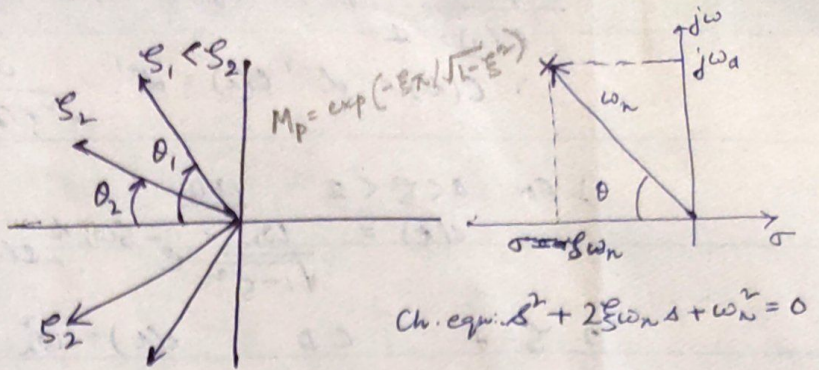 ξ₁ < ξ₂
ξ₂
θ₁
θ₂
ξ₂
Mp = exp(-ξπ/√1-ξ²)
jω
jωd
ωn
θ
σ = -ξωn
σ
Ch. equi. s² + 2ξωn s + ωn² = 0